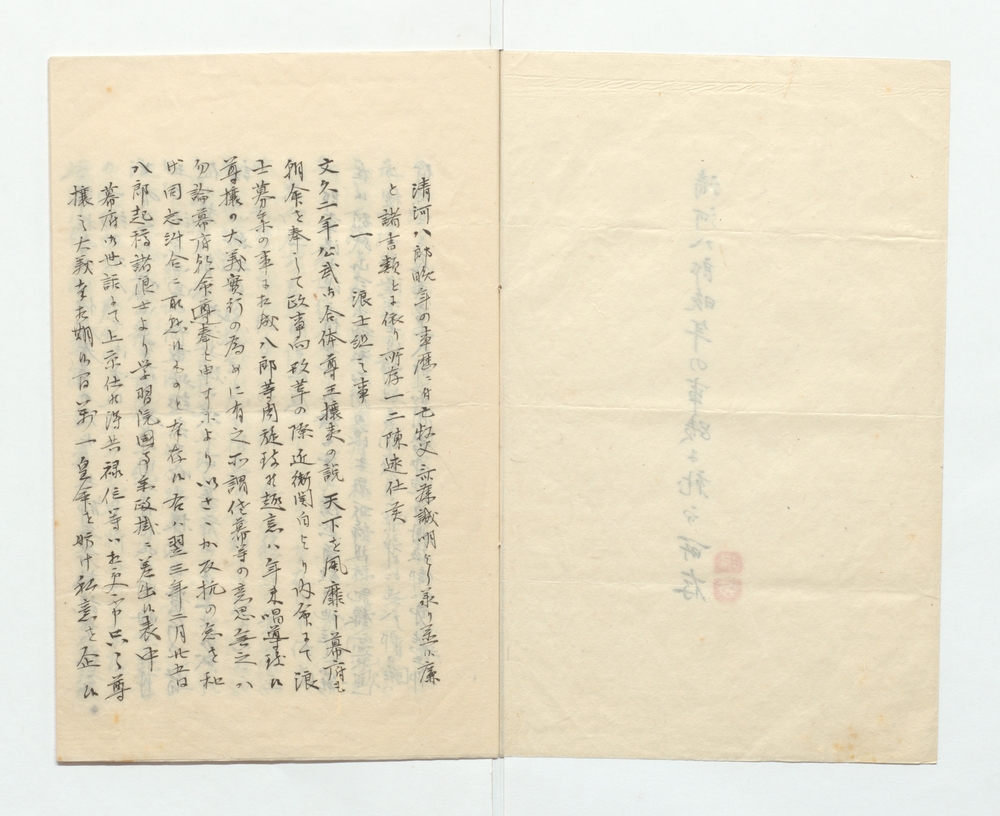 清河八郎晩年の事歴ニ付亡叔父斎藤誠明より承り並ニ
と諸書類とに依り所存一二陳述仕候
一 浪士組之事
文久二年公武御合体尊王攘夷の説天下を風靡し幕府も
朝命を奉して政事向改革の際近衛関白より内命にて浪
士募集の事に相成八郎等周旋致候趣意ハ年来唱導致候
尊攘の大義実行の為めに有之所謂佐幕等の意思無之ハ
勿論幕府的命遵奉と申すよりいさゝか反抗の意を和
け同志糾合ニ取懸候ものと存候右ハ翌三年二月廿五日
八郎起稿諸浪士より学習院国事参政掛ニ差出候表中
幕府御世話にて上京仕候得共禄位等ハ相受不申只々尊
攘之大義奉相期候間万一皇命を妨け私意を企候